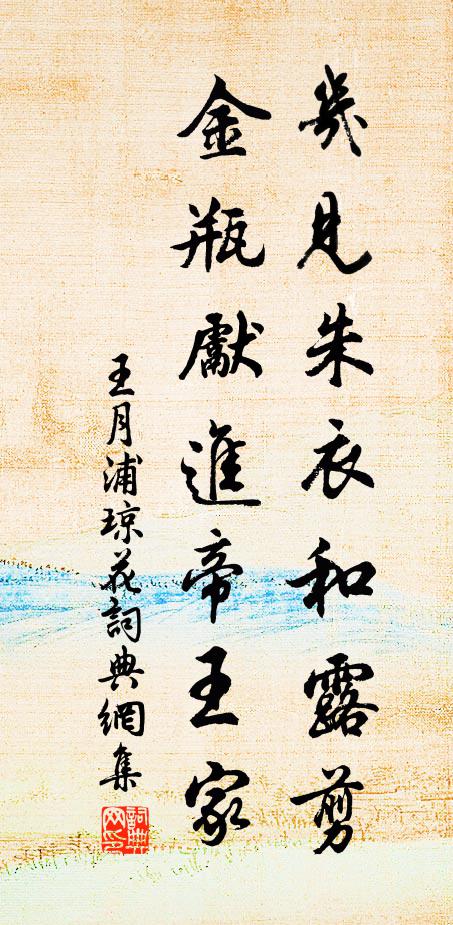 幾見朱衣和露剪
金瓶獻進帝王家
王月浦琼花詞典網集
詞典
网印